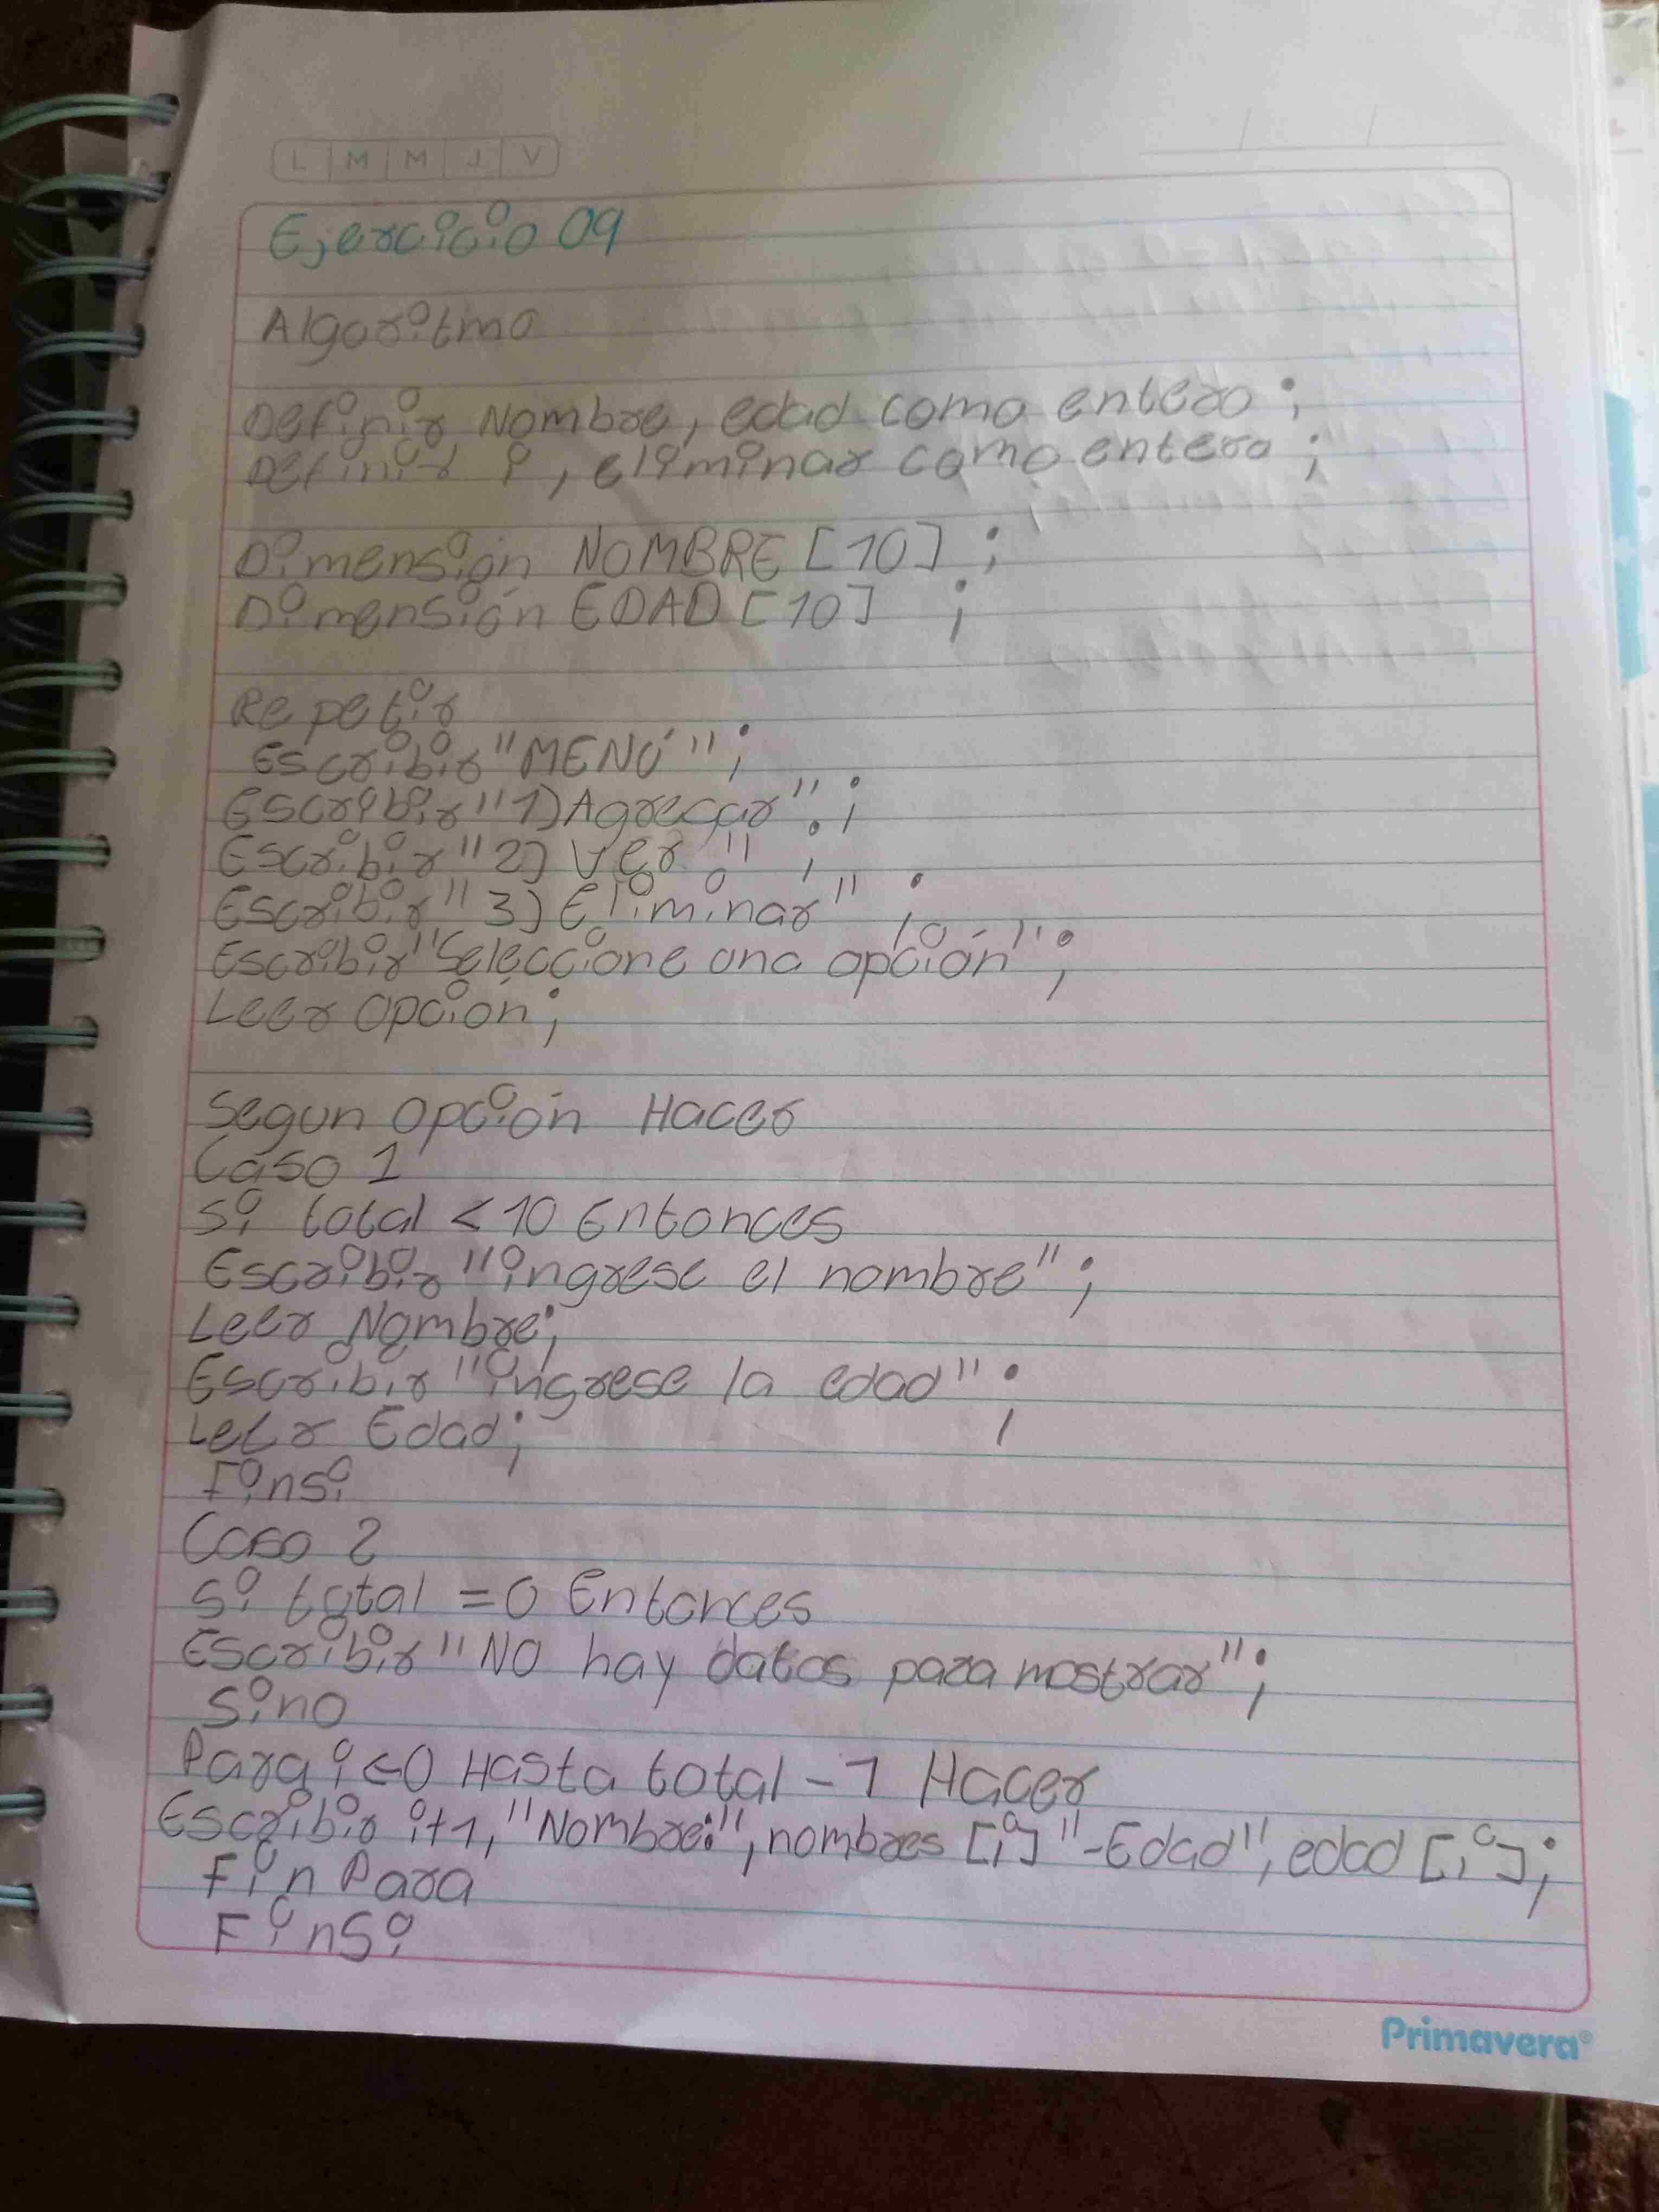 L M M J V
Ejercicio 09
Algoritmo
Definir Nombre, edad como entero;
Definir i, eliminar como entero;
Dimensión NOMBRE [10] ;
Dimensión EDAD [10] ;
Repetir
Escribir "MENÚ" ;
Escribir "1) Agregar" ;
Escribir "2) Ver" ;
Escribir "3) Eliminar" ;
Escribir "Seleccione una opción" ;
Leer Opción;
Segun Opción Hacer
Caso 1
Si total < 10 Entonces
Escribir "ingrese el nombre" ;
Leer Nombre;
Escribir "ingrese la edad" ;
Leer Edad;
Finsi
Caso 2
Si total = 0 Entonces
Escribir "No hay datos para mostrar" ;
Sino
Para i <- 0 Hasta total - 1 Hacer
Escribir i+1, "Nombre:", nombres [i] "-Edad", edad [i];
Fin Para
FinSi
Primavera®